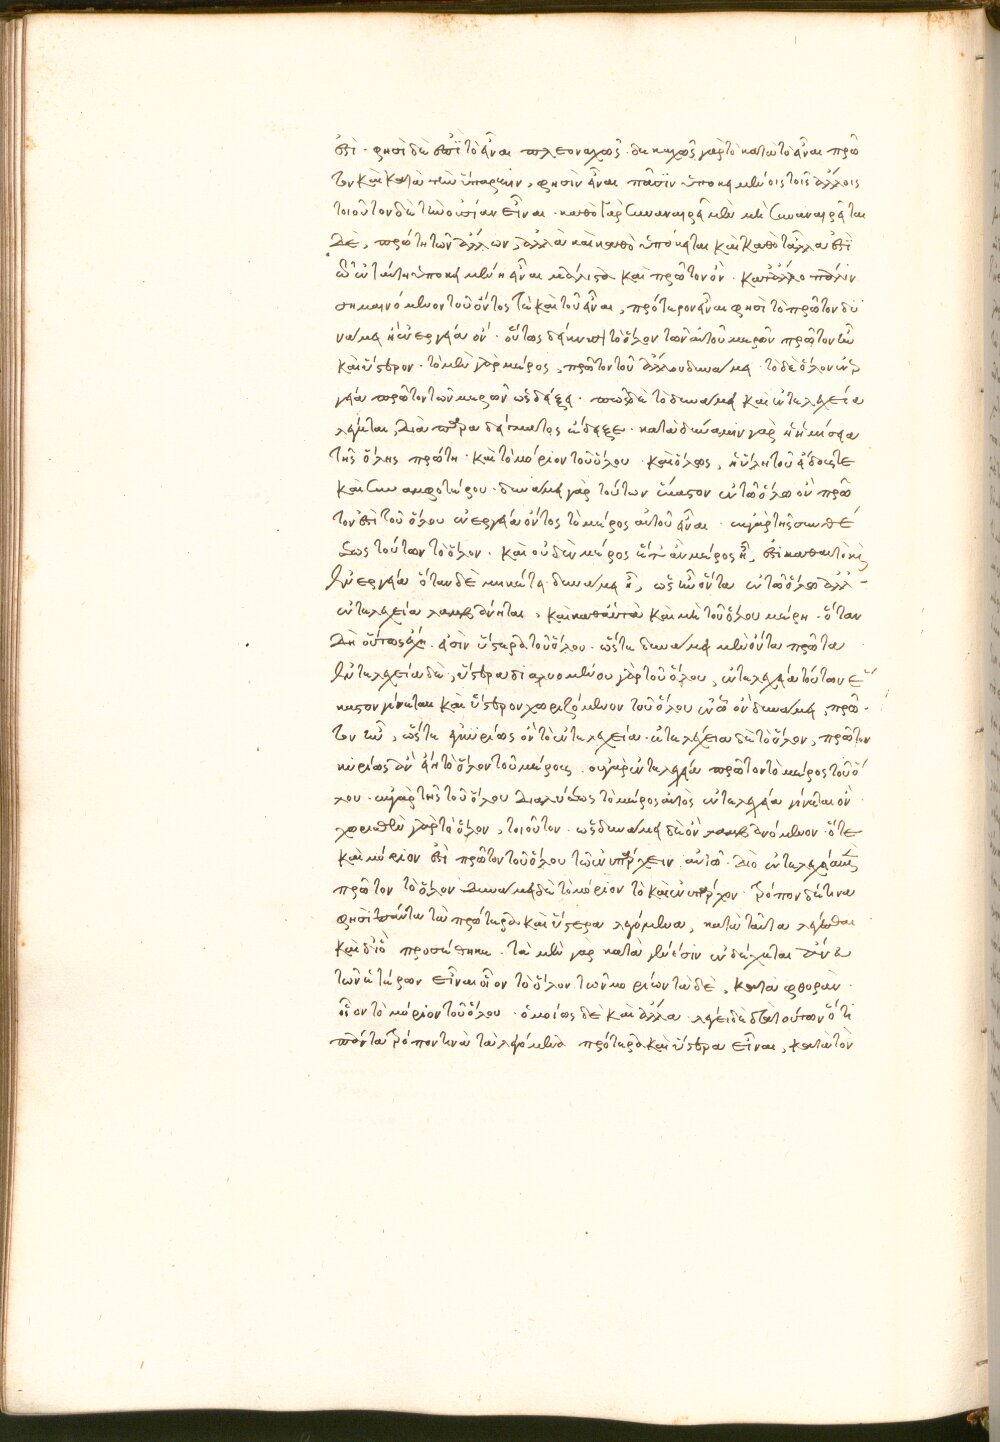 ἐστὶ · φησὶ δὲ ἐπεὶ τὸ εἶναι πλεοναχῶς · δεικτικῶς γὰρ τὸ κατὰ τὸ εἶναι πρῶ
τον καὶ κατὰ τὴν ὕπαρξιν, φησὶν εἶναι πᾶσιν ὑποκειμένοις τοῖς ἄλλοις
τοιοῦτον δὲ τὴν οὐσίαν εἶναι · καθὸ γὰρ συναναιρεῖ μὲν μὴ συναναιρεῖται
δὲ, πρώτη τῶν ἄλλων, ἀλλὰ καὶ καθὸ ὑπόκειται καὶ καθὸ τἆλλα ἐπὶ
ᾧ ἐν ταύτῃ ὑποκειμένη εἶναι μάλιστα καὶ πρῶτον ὄν · κατ' ἄλλο πάλιν
σημαινόμενον τοῦ ὄντος τὲ καὶ τοῦ εἶναι, πρότερον εἶναι φησὶ τὸ πρῶτον δυ
νάμει ἢ ἐνεργείᾳ ὄν · οὕτως δείκνυσι τὸ ὅλον τῶν αὑτοῦ μερῶν πρῶτον ὂν
καὶ ὕστερον · τὸ μὲν γὰρ μέρος, πρῶτον τοῦ ὅλου δυνάμει · τὸ δὲ ὅλον ἐνερ
γείᾳ πρῶτον τῶν μερῶν ὡς δείξει · πῶς δὲ τὸ δυνάμει καὶ ἐντελεχείᾳ
λέγεται, διὰ παραδείγματος ἔδειξε · κατὰ δύναμιν γὰρ ἡ ἡμίσεια
τῆς ὅλης πρώτη · καὶ τὸ μόριον τοῦ ὅλου · καὶ ὅλως, ἡ ὕλη τοῦ εἴδους τε
καὶ συναμφοτέρου · δυνάμει γὰρ τούτων ἕκαστον ἐν τῷ ὅλῳ ὂν πρῶ
τον ἐστὶ τοῦ ὅλου ἐνεργείᾳ ὄντος τὸ μέρος αὐτοῦ εἶναι · ἐκ γὰρ τῆς συνθέ
σεως τούτων τὸ ὅλον · καὶ οὐδὲν μέρος ἔτ' ἂν μέρος ᾖ, ἐστὶ καθ' αὑτὸ καὶ
ἐνεργείᾳ ὅταν δὲ μηκέτι δυνάμει ᾖ, ὡς ἦν ὄντα ἐν τῷ ὅλῳ ἀλλ'
ἐντελεχείᾳ λαμβάνηται, καὶ καθ' αὑτὰ καὶ μὴ τοῦ ὅλου μέρη · ὅταν
δὴ οὕτως ἔχῃ · εἰσὶν ὕστερα τοῦ ὅλου · ὥστε δυνάμει μὲν ὄντα πρῶτα
ἐντελεχείᾳ δὲ, ὕστερα διαλυομένου γὰρ τοῦ ὅλου, ἐντελεχείᾳ τούτων ἕ
καστον γίνεται καὶ ὕστερον χωριζόμενον τοῦ ὅλου ἐν ᾧ ὂν δυνάμει, πρῶ
τον ἦν, ὥστε εἰ κυρίως ὂν τὸ ἐντελεχείᾳ · ἐντελεχείᾳ δὲ τὸ ὅλον, πρῶτον
κυρίως ἂν εἴη τὸ ὅλον τοῦ μέρους · οὐ γὰρ ἐντελεχείᾳ πρῶτον τὸ μέρος τοῦ ὅ
λου · ἐκ γὰρ τῆς τοῦ ὅλου διαλύσεως τὸ μέρος αὐτὸς ἐντελεχείᾳ γίνεται ὂν
χωρισθὲν γὰρ τὸ ὅλον, τοιοῦτον · ὡς δυνάμει δὲ ὂν λαμβανόμενον · ὅτε
καὶ μόριον ἐστὶ πρῶτον τοῦ ὅλου τῷ ἐνυπάρχειν αὐτῷ · διὸ ἐντελεχείᾳ μὲν
πρῶτον τὸ ὅλον δυνάμει δὲ τὸ μόριον τὸ καὶ ἐνυπάρχον · τρόπον δέ τινα
φησὶ πάντα τὰ πρότερα καὶ ὕστερα λεγόμενα, κατὰ ταῦτα λέγεσθαι
καὶ διὸ προσέθηκε · τὰ μὲν γὰρ κατὰ γένεσιν ἐνδέχεται ἄνευ
τῶν ἑτέρων εἶναι οἷον τὸ ὅλον τῶν μορίων τὰ δὲ, κατὰ φθορὰν ·
οἷον τὸ μόριον τοῦ ὅλου · ὁμοίως δὲ καὶ ἄλλα · λέγει δὲ διὰ τούτων ὅτι
πάντα τρόπον τινὰ τὰ λεγόμενα πρότερα καὶ ὕστερα εἶναι, κατὰ τὸν